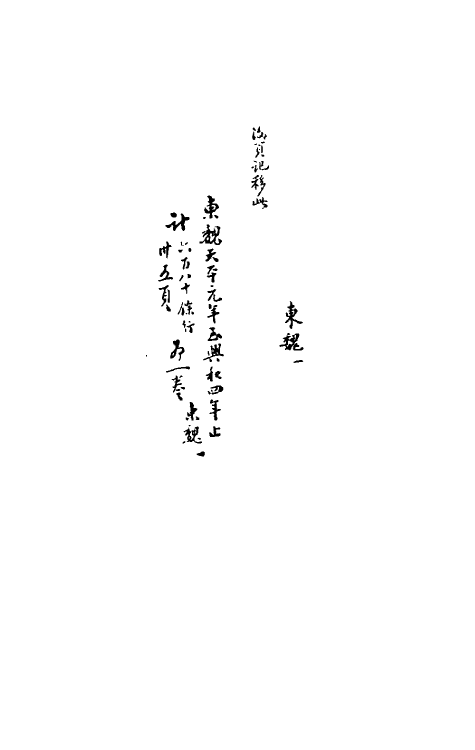 東魏一
頁記移此
東魏天平元年至興和四年止
計六百八十條行為一卷
卅五頁
東魏一